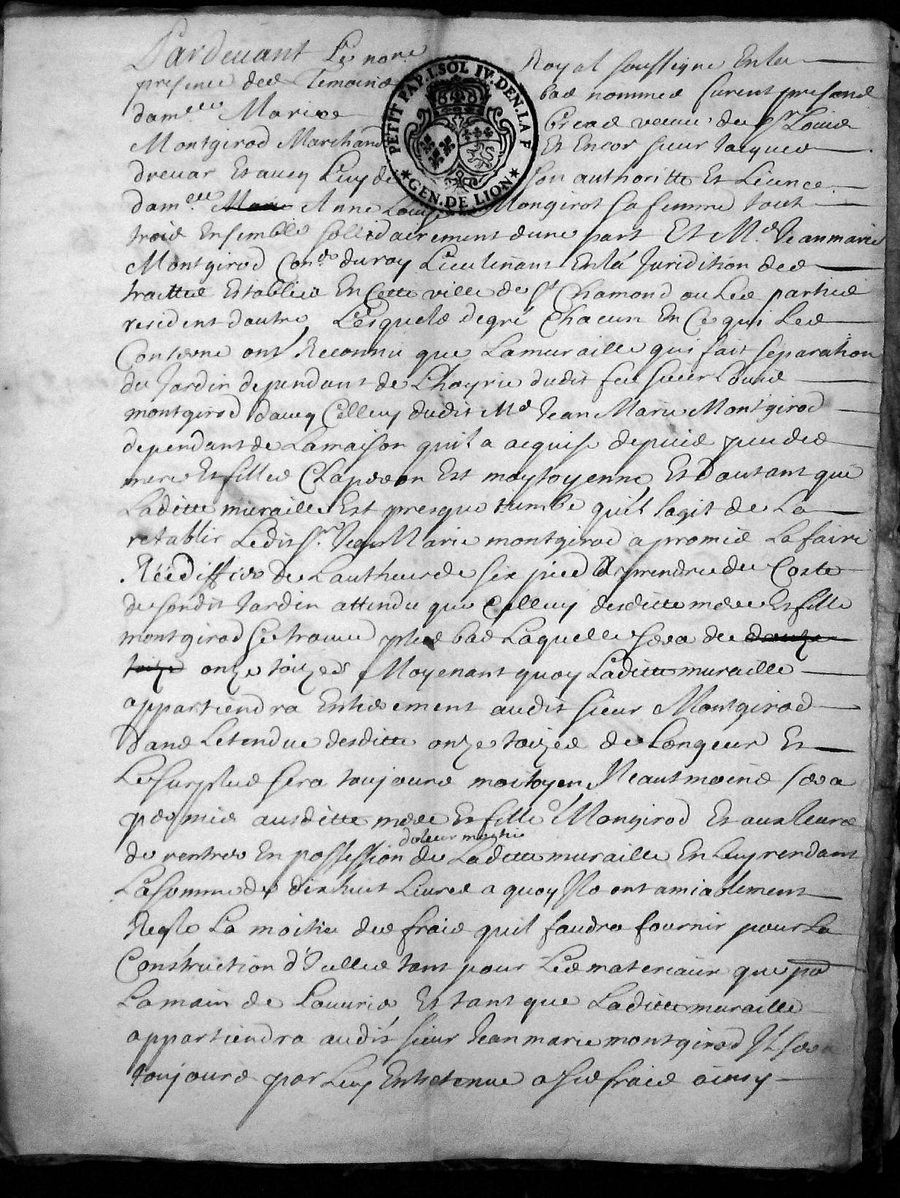 Pardevant Le nore Royal soussigne En la
presence des Temoins bas nommes furent presens
damelle Marie veuve du sr Louis
Montgirod Marchand Et Encor sieur Jacques
drevar Et avec Luy de son authoritte Et Licence
damelle Anne Louise Mongirot sa femme tout
trois Ensemble sollidairement dune part Et Me Jean marie
Montgirod Coner du roy Lieutenant En la Juridition des
traittes Establies En Cette ville de st Chamond ou Les parties
resident dautre Lesquels de gré Chacun En Ce qui Les
Conserne ont Reconnu que La muraille qui fait separation
du Jardin dependant de Lhoyrie dudit feu sieur Louis
montgirod davec Celluy dudit Me Jean Marie Montgirod
dependant de La maison quil a acquise depuis peu des
mere Et filles Chapeon Est maytoyenne Et Dautant que
Laditte muraille Est presque tumbe quil sagit de La
retablir Ledit sr Jean Marie montgirod a promis La faire
Réédiffier de Lautheur de six pied a prendre du Coste
de sondit Jardin attendu que Celluy desditte mere Et fille
montgirod se trouve plus bas Laquelle sera de douze
toize onze toizes Moyenant quoy Laditte muraille
appartiendra Entierement audit sieur Montgirod
Dans Letendue desditte onze toizes de Longeur Et
Le surplus sera toujours moitoyen Neautmoins sera
permis ausditte mere Et fille Mongirod Et aux Leurs
de rentrer En possession de Laditte muraille En Luy rendant
La somme de dix huit Livres a quoy Ils ont amiablement
Regle La moitie des frais quil faudra fournir pour La
Construction d'Icelle tant pour Les materiaux que po
La main de Louvrie Et tant que Laditte muraille
appartiendra audit sieur Jean marie montgirod Il sera
toujours par Luy Entretenue a ses frais ainsy
PETIT PAP. I. SOL IV. DEN. LA F
GEN. DE LION